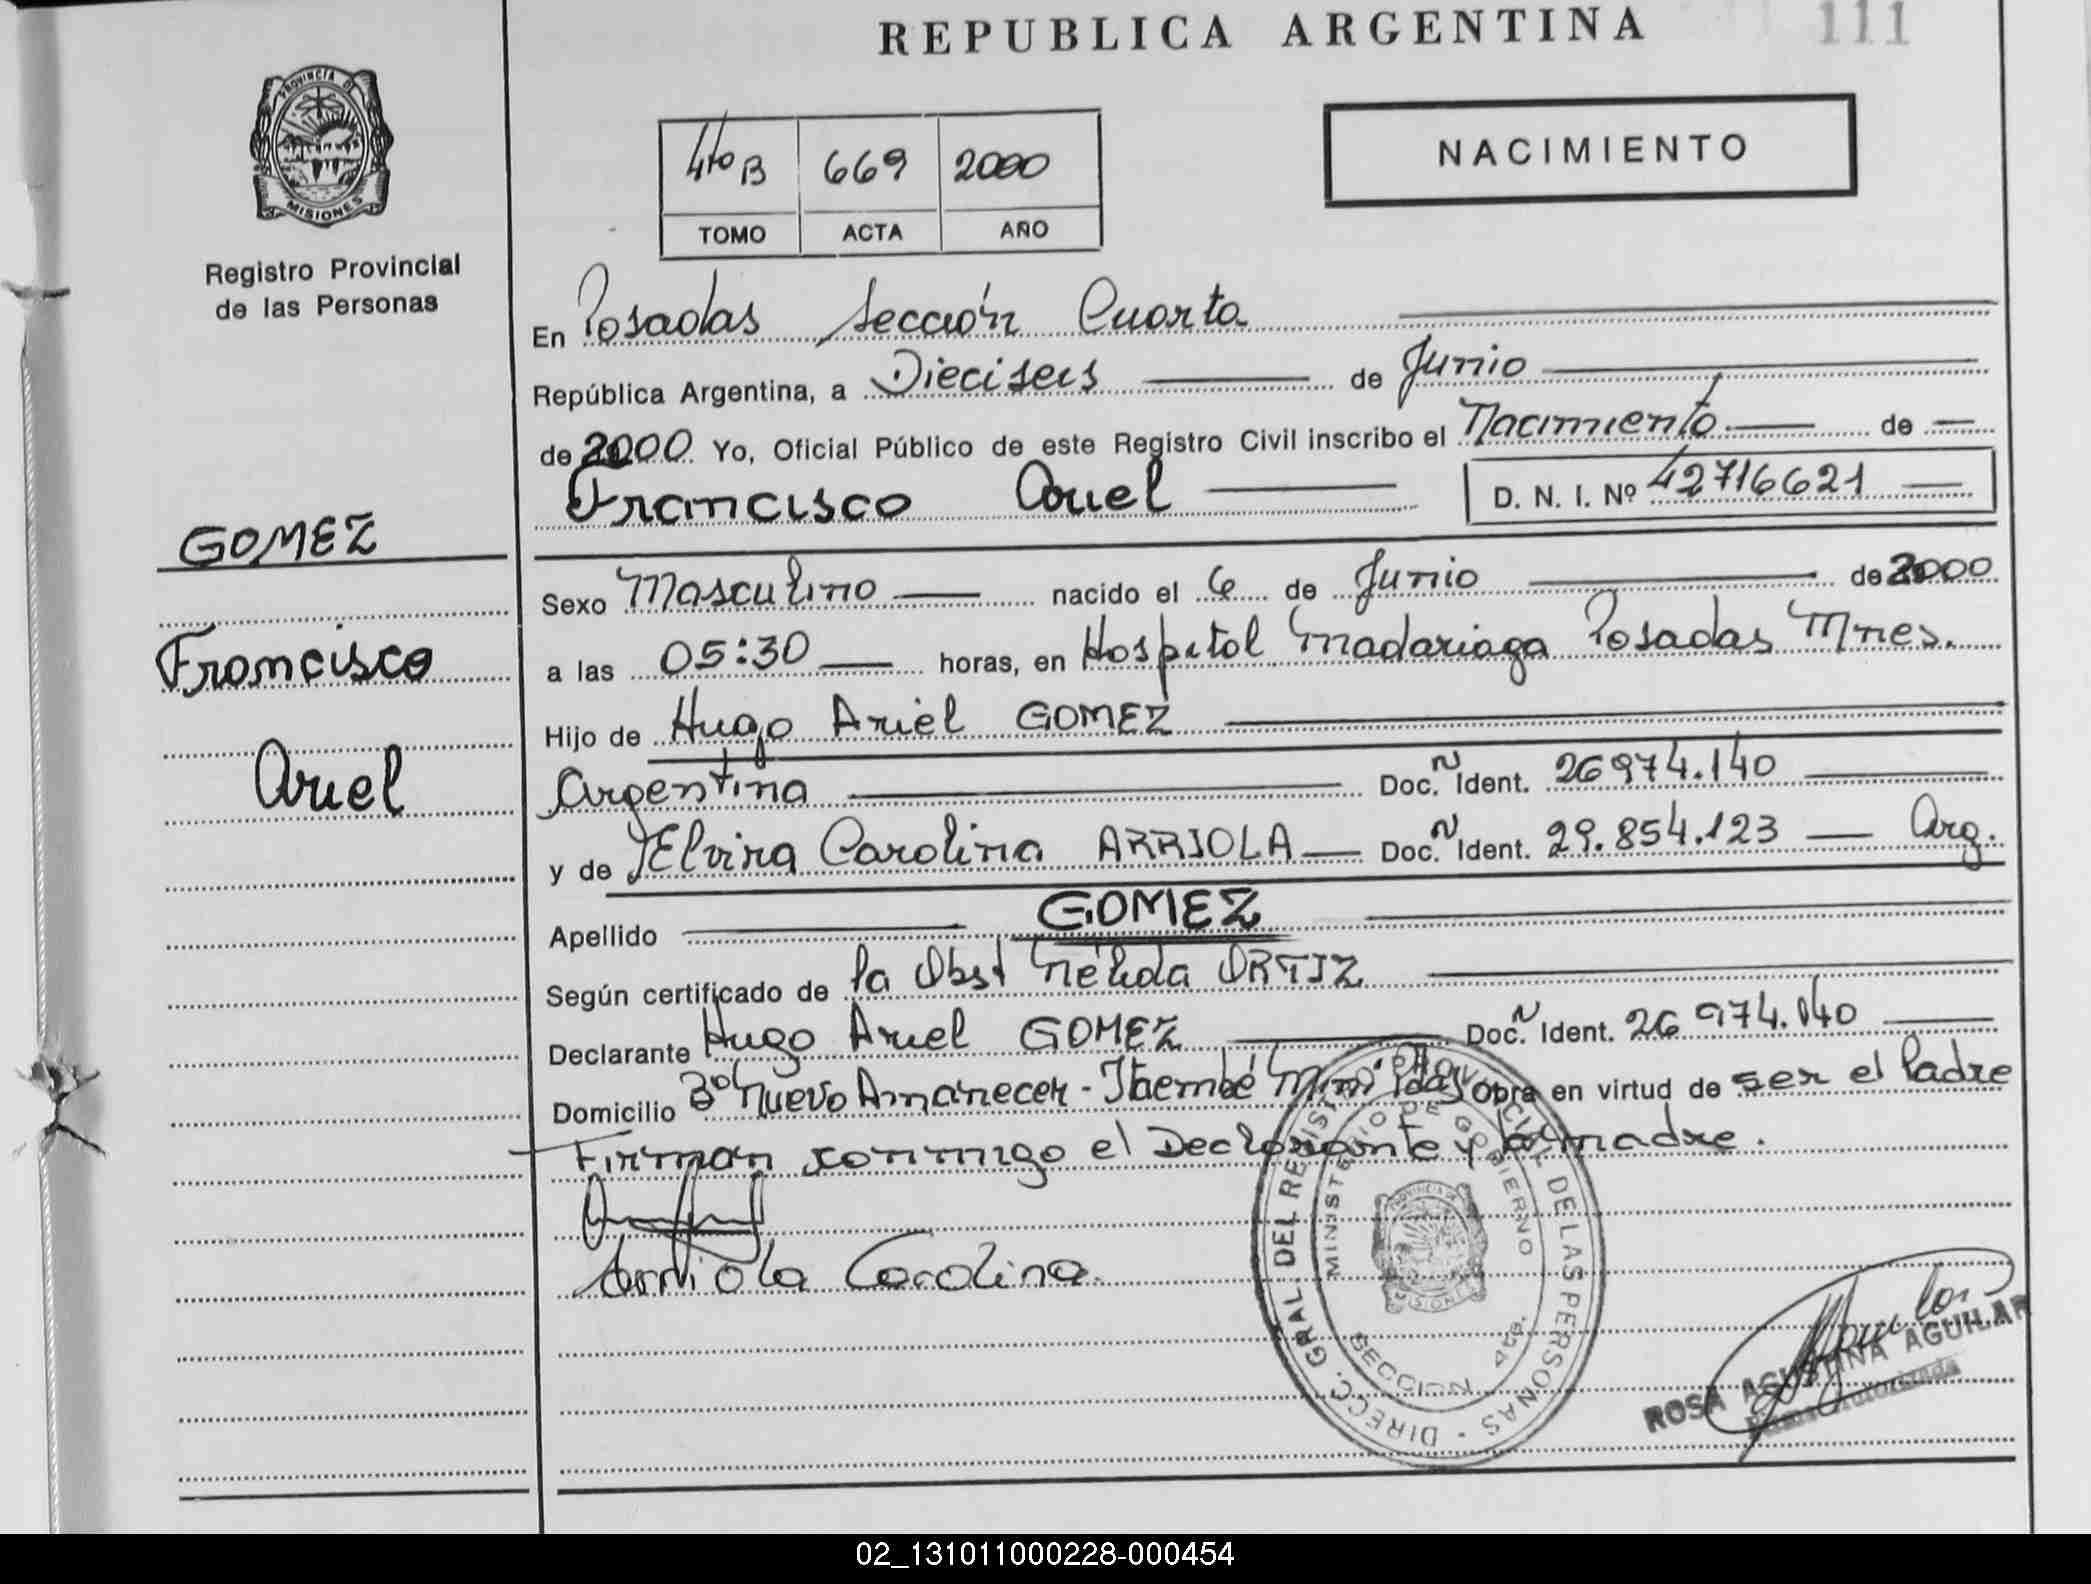 REPUBLICA ARGENTINA
111
PROVINCIA DE
MISIONES
Registro Provincial
de las Personas
4to B 669 2000
TOMO ACTA AÑO
NACIMIENTO
En Posadas Sección Cuarta
República Argentina, a Dieciseis de Junio
de 2000 Yo, Oficial Público de este Registro Civil inscribo el Nacimiento de
Francisco Ariel D. N. I. Nº 42716621
GOMEZ
Francisco
Ariel
Sexo Masculino nacido el 6 de Junio de 2000
a las 05:30 horas, en Hospital Madariaga Posadas Mnes.
Hijo de Hugo Ariel GOMEZ
Argentina Doc. N Ident. 26974.140
y de Elvira Carolina ARRIOLA Doc. N Ident. 29.854.123 Arg.
Apellido GOMEZ
Según certificado de la Obst Nélida ORTIZ
Declarante Hugo Ariel GOMEZ Doc. N Ident. 26 974.140
Domicilio Bº Nuevo Amanecer - Itaembé Mini Pdas Obra en virtud de ser el Padre
Firman conmigo el Declarante y la madre.
Arriola Carolina.
DIRECC. GRAL. DEL REGISTRO PROVINCIAL DE LAS PERSONAS
MINISTERIO DE GOBIERNO
PROVINCIA DE
MISIONES
SECCION 4ta.
ROSA AGUSTINA AGUILAR
02_131011000228-000454